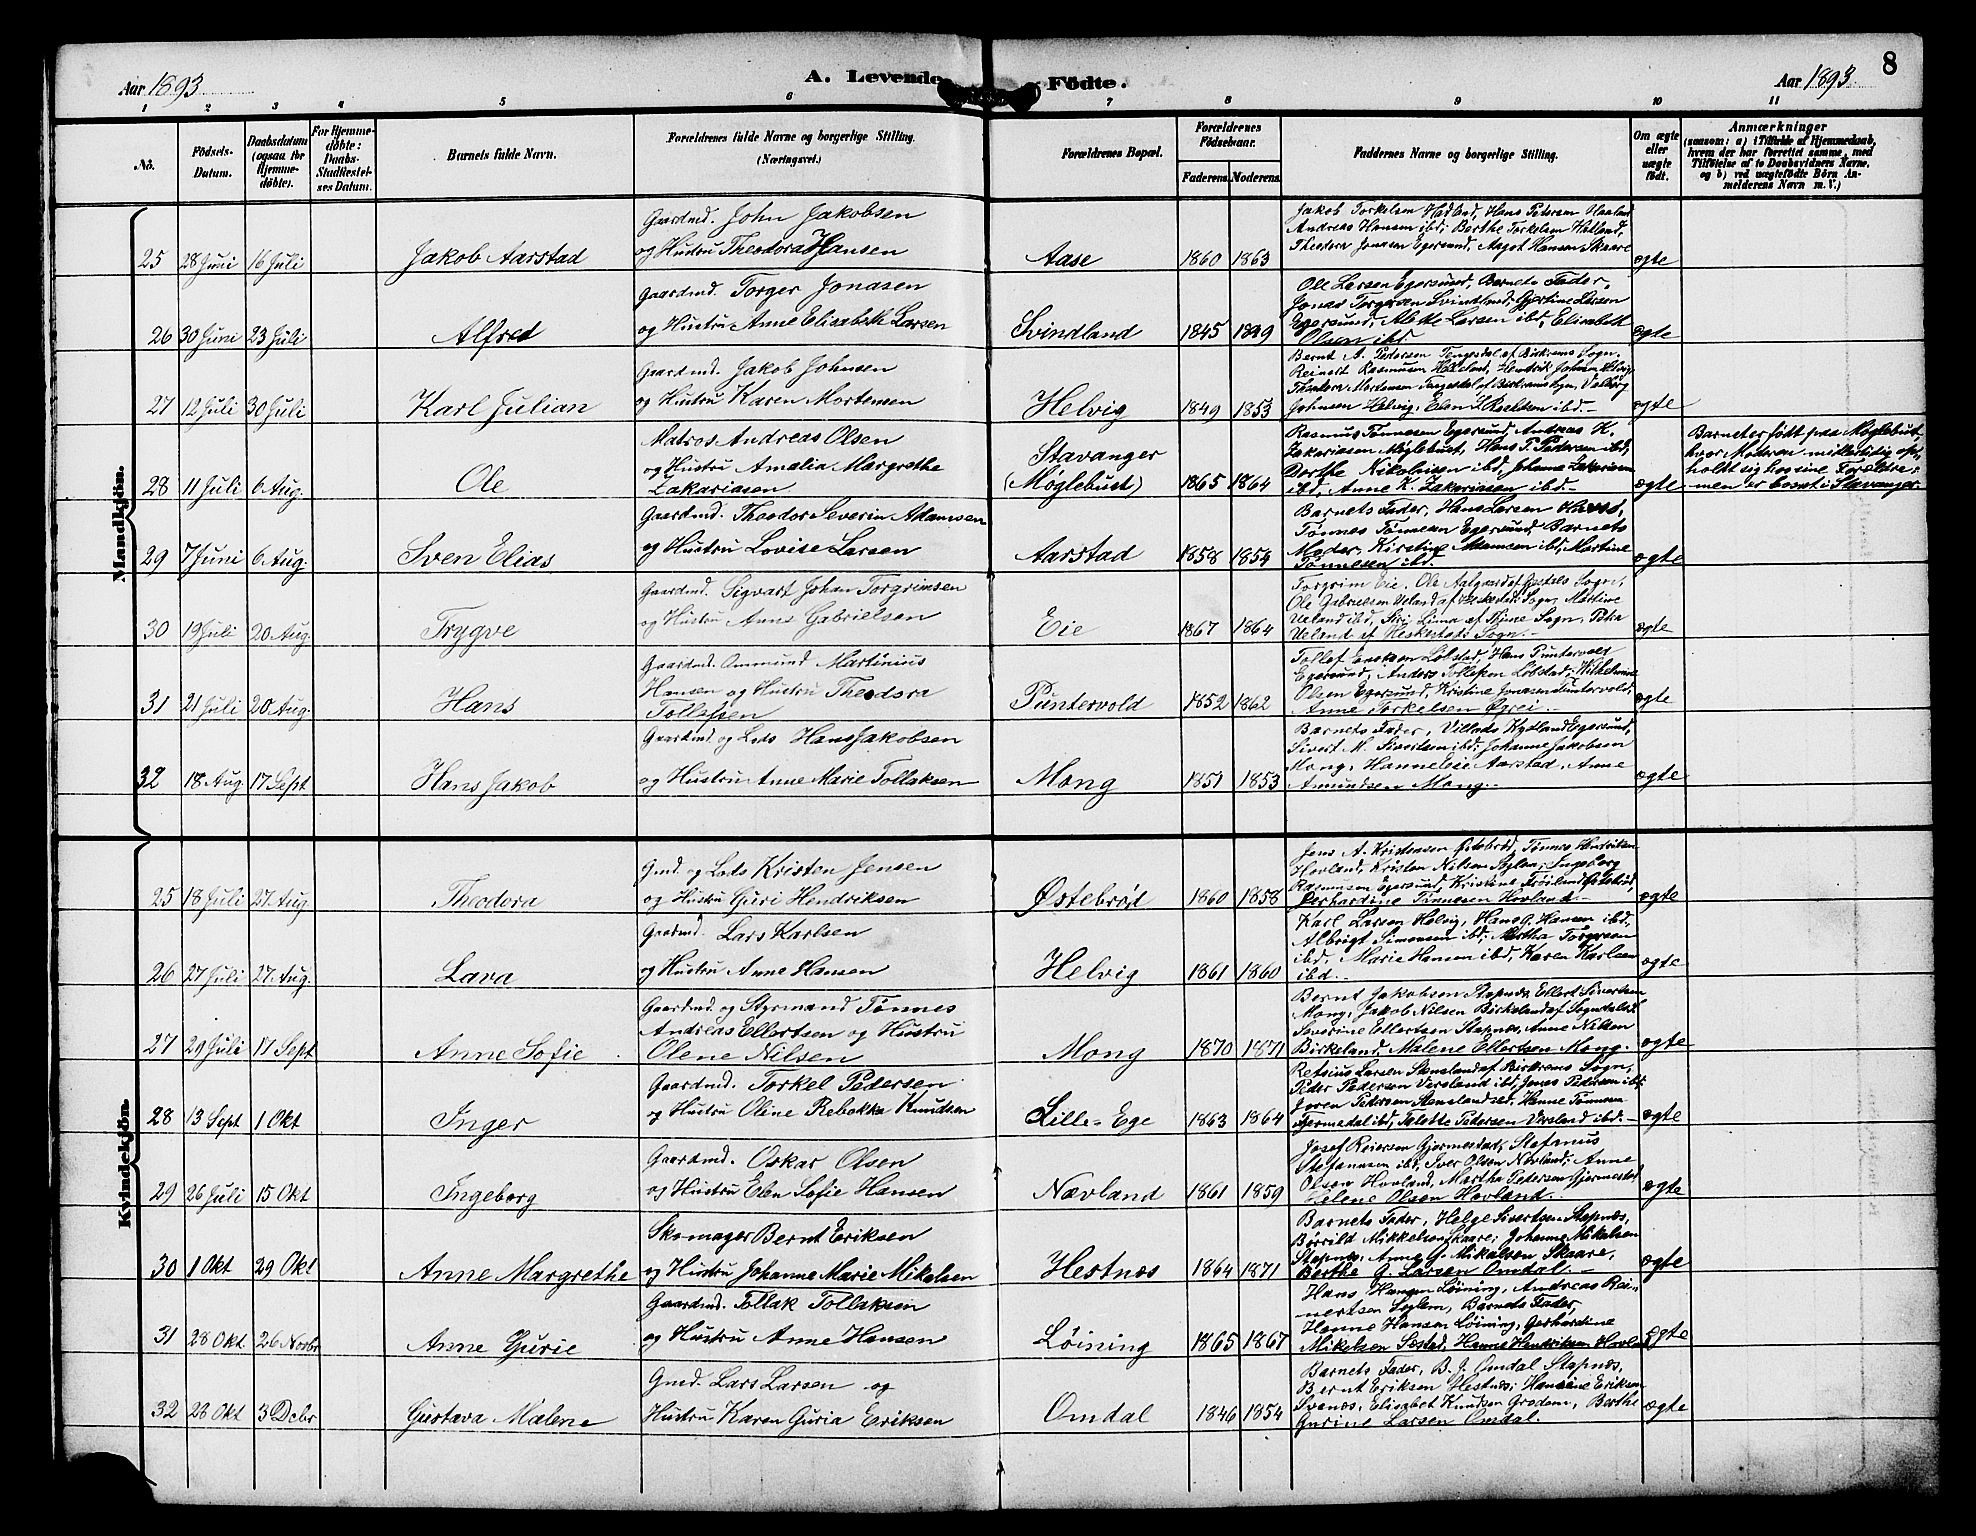 Aar 1893
A. Levende Födte.
Aar 1893
8
1 2 3 4 5 6 7 8 9 10 11
No.
Födsels-
Datum.
Daabsdatum
(ogsaa for
Hjemme-
döbte).
For Hjemme-
döbte:
Daabs-
Stadfæstel-
ses Datum.
Barnets fulde Navn.
Forældrenes fulde Navne og borgerlige Stilling.
(Næringsvei.)
Forældrenes Bopæl.
Forældrenes
Födselsaar.
Faderens. Moderens.
Faddernes Navne og borgerlige Stilling.
Om ægte
eller
uægte
födt.
Anmærkninger
(saasom: a) i Tilfælde af Hjemmedaab,
hvem der har forrettet samme, med
Tilföielse af to Daabsvidners Navne,
og b) ved uægtefödte Börn An-
melderens Navn m. V.)
Mandkjön.
Gaardmd. John Jakobsen
Jakob Torkelsen Hadland, Hans Petersen Haaland
Andreas Hansen ibd; Berthe Torkelsen Hetland,
25 28 Juni 16 Juli Jakob Aarstad og Hustru Theodora Hansen Aase 1860 1863 Theodora Jonasen Egersund, Aagot Hansen Skaare ægte
Gaardmd. Torger Jonasen
Ole Larsen Egersund, Barnets Fader,
Jonas Torgersen Svindland, Gjertine Larsen
26 30 Juni 23 Juli Alfred og Hustru Anne Elisabeth Larsen Svindland 1845 1849 Egersund, Alette Larsen ibd, Elisabeth ægte
Olsen ibd
Gaardmd. Jakob Johnsen
Bernt A. Pedersen Tengesdal af Birkrems Sogn.
Reinert Rasmussen Hæstad, Hendrik Johnsen Helvig
Theodora Mortensen Tengesdal af Birkrems Sogn, Valborg
27 12 Juli 30 Juli Karl Julian og Hustru Karen Mortensen Helvig 1849 1853 Johnsen Helvig, Elen L Roaldsen ibd.- ægte
Matros Andreas Olsen
og Hustru Amalia Margrethe
Stavanger
Rasmus Tønnesen Egersund, Andreas K.
Zakariasen Møglebust, Hans P. Pedersen ibd,
Dorthe Nikolaisen ibd, Johanne Zakariasen
28 11 Juli 6 Aug. Ole Zakariasen (Møglebust) 1865 1864 ibd, Anne K. Zakariasen ibd.- ægte
Barnet er født paa Møglebust,
hvor Moderen midlertidig op-
holdt sig hos sine Forældre,
men er bosat i Stavanger.
Gaardmd. Theodor Severin Adamsen
Barnets Fader, Hans Larsen
Tønnes Tønnesen Egersund, Barnets
29 7 Juni 6 Aug. Sven Elias og Hustru Lovise Larsen Aarstad 1858 1854 Moder, Kirstine Adamsen ibd, Martine ægte
Tønnesen ibd.
Gaardmd. Sigvart Johan Torgrimsen
Torgrim Eie, Ole Aalgaard af Gjestals Sogn,
Ole Gabrielsen Ueland af Heskestads Sogn, Martine
Ueland ibd, Siri Lima af Thime Sogn, Petra
30 19 Juli 20 Aug. Trygve og Hustru Anne Gabrielsen Eie 1867 1864 Ueland af Heskestads Sogn. ægte
Gaardmd. Ommund Martinius
Hansen og Hustru Theodora
Tollef Eriksen Løbstad, Hans Puntervold
Egersund, Anders Tollefsen Løbstad, Wilhelmine
Olsen Egersund, Kristine Jonasen Puntervold,
31 21 Juli 20 Aug. Hans Tollefsen Puntervold 1852 1862 Anne Torkelsen Øgrei. ægte
Gaardmd. og Lods Hans Jakobsen
Barnets Fader, Villads Kydland Egersund,
Sivert M. Sivertsen ibd; Johanne Jakobsen
32 18 Aug. 17 Sept Hans Jakob og Hustru Anne Marie Tollaksen Mong 1851 1853 Mong, Hanne Eie Aarstad, Anne ægte
Amundsen Mong.-
Kvindekjön.
Gmd. og Lods Kristen Jensen
Jens A. Kristensen Østebrød, Tønnes Hendriksen
Hovland, Kristen Nilsen, Ingeborg
Rasmusen Egersund, Kristine Frøiland Østebrød,
25 18 Juli 27 Aug. Theodora og Hustru Guri Hendriksen Østebrød 1860 1858 Gerhardine Tønnesen Hovland.- ægte
Gaardmd. Lars Karlsen
Karl Larsen Helvig, Hans G. Hansen ibd.
Albrigt Simonsen ibd; Martha Torgersen
ibd, Marie Hansen ibd, Karen Karlsen
26 27 Juli 27 Aug. Lava og Hustru Anne Hansen Helvig 1861 1860 ibd.- ægte
Gaardmd. og Styrmand Tønnes
Andreas Ellertsen og Hustru
Bernt Jakobsen Stapnæs, Ellert Sivertsen
Mong, Jakob Nilsen Birkeland af Sogndalest.
Severine Ellertsen Stapnes, Anne Nilsen
27 29 Juli 17 Sept Anne Sofie Olene Nilsen Mong 1870 1871 Birkeland, Malene Ellertsen Mong. ægte
Gaardmd. Torkel Pedersen
Retsius Larsen Stensland af Birkrems Sogn,
Peder Pedersen Versland ibd, Jonas Pedersen ibd;
Joren Pedersen Stensland ibd, Hanne Tønnesen
28 13 Sept 1 Okt Inger og Hustru Oline Rebekka Knudsen Lille-Ege 1863 1864 Tjermedal ibd, Talette Pedersen Versland ibd.- ægte
Gaardmd. Oskar Olsen
Josef Reiersen Gjermestad, Stefanus
Stefanusen ibd, Iver Olsen Nævland; Anne
29 26 Juli 15 Okt Ingeborg og Hustru Elen Sofie Hansen Nævland 1861 1859 Olsen Hovland, Martha Petersen Gjermestad ægte
Helene Olsen Hovland.
Skomager Bernt Eriksen
Barnets Fader, Helge Sivertsen Stapnæs,
Børrild Mikkelsen Skaare; Johanne Mikalsen
Stapnæs, Anne G. Mikalsen Skaare,
30 1 Okt 29 Okt Anne Margrethe og Hustru Johanne Marie Mikalsen Hestnæs 1864 1871 Berthe G. Larsen Omdal.- ægte
Gaardmd. Tollak Tollaksen
Hans Hansen Løining, Andreas Rei-
nertsen Seglem, Barnets Fader,
Hanne Hansen Løining, Gerhardine
31 28 Okt. 26 Novbr Anne Gurie og Hustru Anne Hansen Løining 1865 1867 Mikelsen Sæstad, Hanne Hendriksen Hovland ægte
Gmd. Lars Larsen og
Barnets Fader, B. G. Omdal Stapnæs,
Bernt Eriksen Hestnes; Hansine Eriksen
32 28 Okt 3 Debr Gustava Malene Hustru Karen Guria Eriksen Omdal 1846 1854 Svanes, Elisabet Knudsen Grødem, Berthe ægte
Gurine Larsen Omdal.